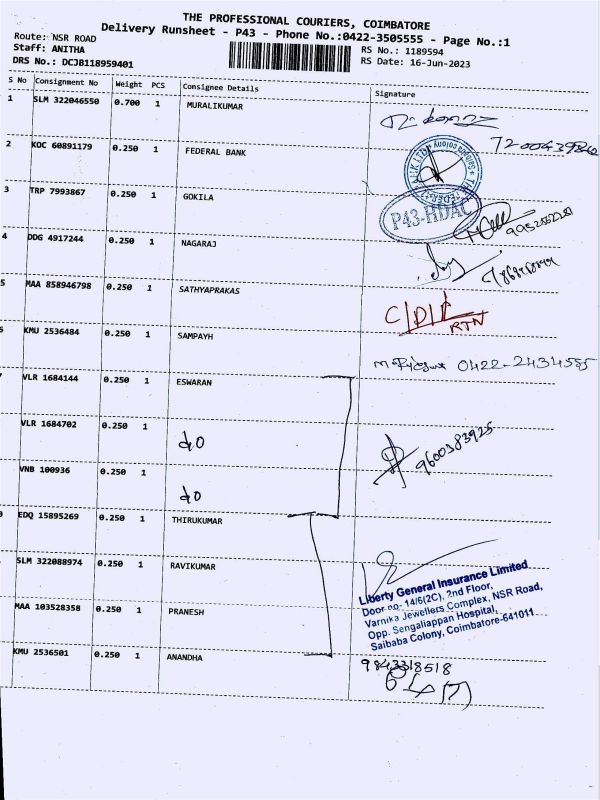 THE PROFESSIONAL COURIERS, COIMBATORE
Delivery Runsheet - P43 - Phone No.:0422-3505555 - Page No.:1
Route: NSR ROAD
Staff: ANITHA
DRS No.: DCJB118959401
RS No.: 1189594
RS Date: 16-Jun-2023
S No Consignment No Weight PCS Consignee Details Signature
1 SLM 322046550 0.700 1 MURALIKUMAR
2 KOC 60891179 0.250 1 FEDERAL BANK
3 TRP 7993867 0.250 1 GOKILA
P43-HDAC
4 DDG 4917244 0.250 1 NAGARAJ
5 MAA 858946798 0.250 1 SATHYAPRAKAS
C/D/L
RTN
KMU 2536484 0.250 1 SAMPAYH
0422-2434555
VLR 1684144 0.250 1 ESWARAN
VLR 1684702 0.250 1 do
9600383925
VNB 100936 0.250 1 do
EDQ 15895269 0.250 1 THIRUKUMAR
SLM 322088974 0.250 1 RAVIKUMAR
Liberty General Insurance Limited
Door no- 14/6(2C), 2nd Floor,
Varnika Jewellers Complex, NSR Road,
Opp. Sengaliappan Hospital,
Saibaba Colony, Coimbatore-641011
MAA 103528358 0.250 1 PRANESH
KMU 2536501 0.250 1 ANANDHA
9843318518